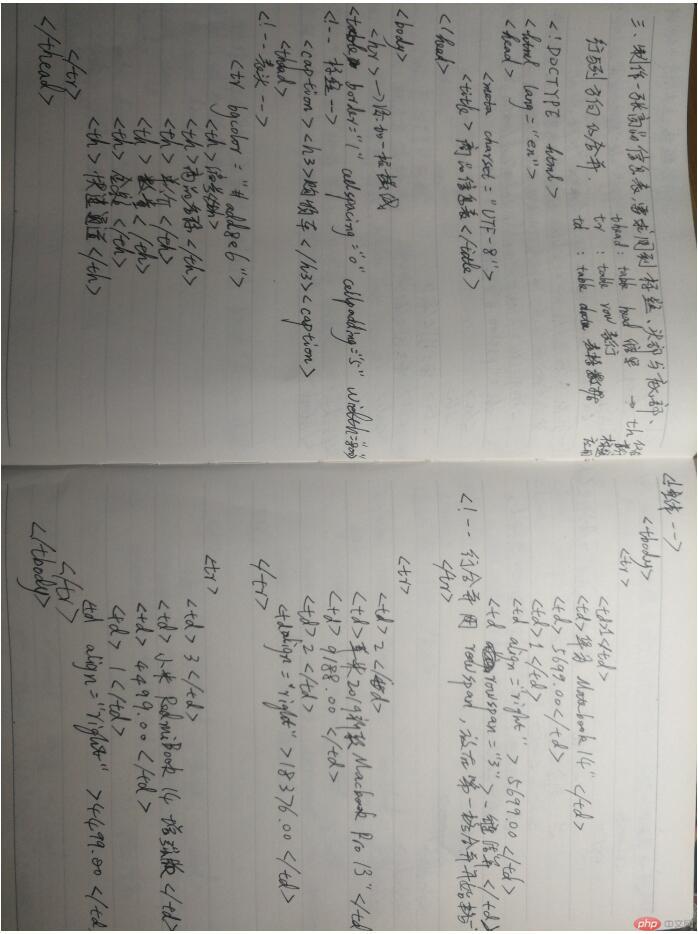 三、制作一张商品信息表,要求用到标题、头部与底部、
行与列方向的合并.
thead: table head 
tr : table row 表行
td : table data 表格数据
<!DOCTYPE html>
<html lang="en">
<head>
<meta charset="UTF-8">
<title>商品信息表</title>
</head>
<body>
<hr>→添加一标题线
<table border="1" cellspacing="0" cellpadding="5" width="800"
<!-- 标题 -->
<caption><h3>购物车</h3><caption>
<thead>
<!-- 表头 -->
<tr bgcolor="#add8e6">
<th>编号</th>
<th>商品名称</th>
<th>单价</th>
<th>数量</th>
<th>金额</th>
<th>快速通道</th>
</tr>
</thead>
<!主体-->
<tbody>
<tr>
<td>1</td>
<td>华为 Matebook 14"</td>
<td>5699.00</td>
<td>1</td>
<td align="right">5699.00</td>
<td rowspan="3">一键结算</td>
<!-- 行合并用 rowspan,
</tr>
<tr>
<td>2</td>
<td>苹果2019新款 Macbook Pro 13"</td
<td>9188.00</td>
<td>2</td>
<td align="right">18376.00</td>
</tr>
<tr>
<td>3</td>
<td>小米 RedmiBook 14 增强版</td>
<td>4499.00</td>
<td>1</td>
<td align="right">4499.00</td
</tr>
</tbody>
php 中文网